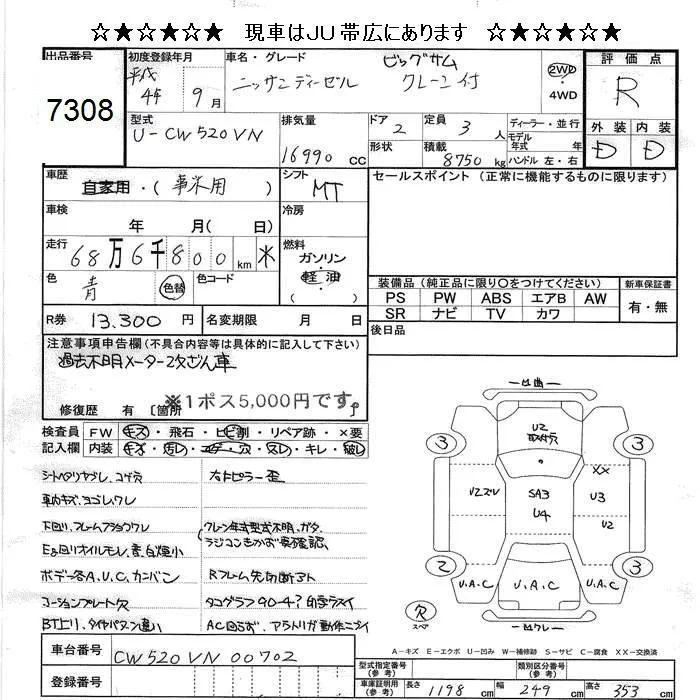 ☆★☆★☆★☆ 現車はJU帯広にあります ☆★☆★☆★☆
出品番号
7308
初度登録年月
平成
4年 9月
車名・グレード
ニッサンディーゼル ビッグサム
クレーン付
2WD
・
4WD
評価点
R
外装 内装
D D
型式
U-CW520VN
排気量
16990 CC
ドア 2
形状
定員 3 人
積載 8750 kg
ディーラー・並行
モデル
年式 年
ハンドル 左・右
車歴
自家用・(事業用)
シフト
MT
セールスポイント (正常に機能するものに限ります)
車検
年 月( 日)
冷房
走行
68万6千800 km ※
燃料
ガソリン
軽油
( )
色
青
色替
色コード
装備品 (純正品に限り○をつけてください)
PS PW ABS エアB AW
SR ナビ TV カワ
新車保証書
有・無
R券 13,300 円
名変期限 月 日
後日品
注意事項申告欄(不具合内容等は具体的に記入して下さい)
過去不明メーター改ざん車
※1ポス5,000円です。
修復歴 有 [箇所
検査員
記入欄
FW キズ・飛石・ヒビ割・リペア跡・×要
内装 キズ・汚レ・コゲ・穴・スレ・キレ・破レ
シートヘタリヤブレ、コゲ穴
車内キズ、ヨゴレ、ワレ
下回り、フレームフショクワレ
E/g回りオイルモレ、音、白煙小
ボデー各A、U、C、カンバン
コーションプレート欠
BT上リ、タイヤパターン違い
右Fピラー歪
クレーン年式型式不明、ガタ、
ラジコンもかず要確認、
Rフレーム先切断アト
タコグラフ90-4? 印字ウスイ
AC回らず、アシトリガ動作ニブイ
凹曲
U2
3 3
XX
U2ズU
SA3
U4
U3
U2
2 3
U.A.C
U.A.C
U.A.C
欠
スペア
凹クレ
A-キズ E-エクボ U-凹み W-補修跡 S-サビ C-腐食 XX-交換済
車台番号
CW520VN00702
登録番号
型式指定番号
(参考)
類別区分番号
(参考)
車庫証明用
(参考)
長さ 1198 cm 幅 249 cm 高さ 353 cm